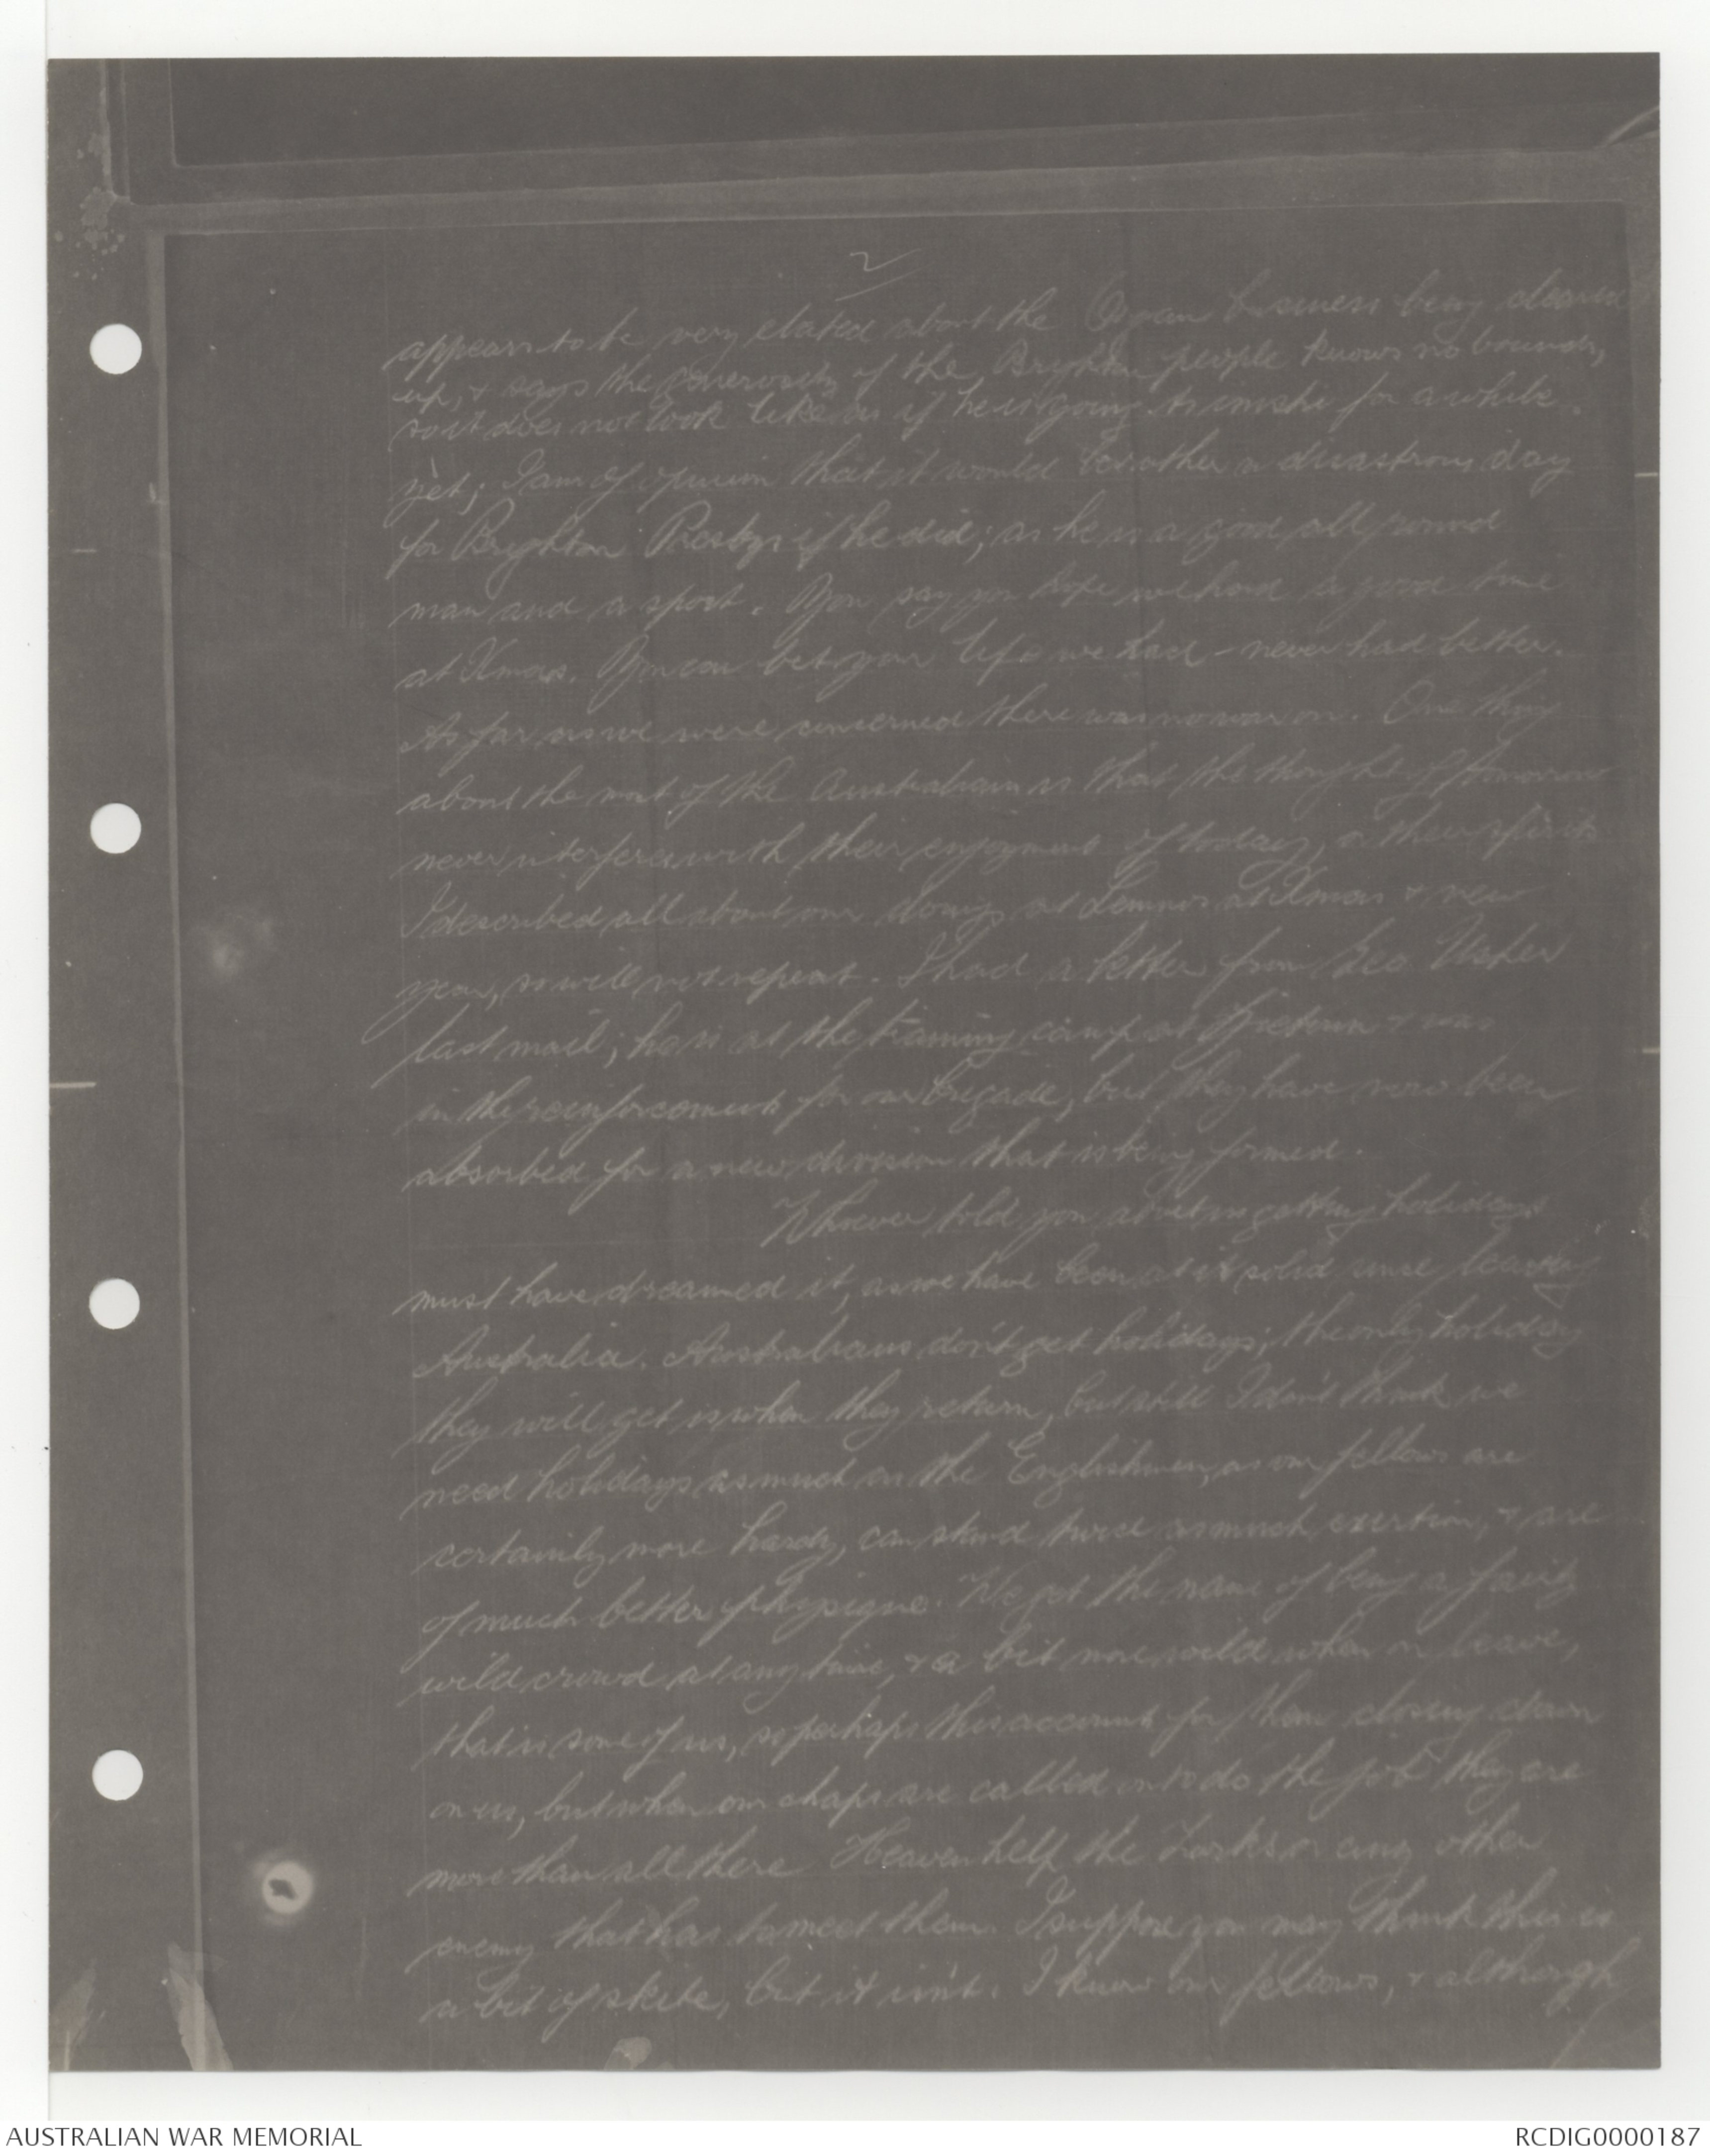 2
appears to be very elated about the Organ business being cleared
up, & says the generosity of the Brighton people knows no bounds,
so it does not look like as if he is going to imshi for a while
yet; I am of opinion that it would be rather a disastrous day
for Brighton Presbys if he did; as he is a good all round
man and a sport. You say you hope we had a good time
at Xmas. You can bet your life we had - never had better.
As far as we were concerned there was no war on. One thing
about the most of the Australians is that the thought of tomorrow
never interferes with their enjoyment of today, or their spirits
I described all about our doings at Lemnos at Xmas & new
year, so will not repeat. I had a letter from Geo Usher
last mail; he is at the training camp at & was
in the reinforcements for our brigade, but they have now been
absorbed for a new division that is being formed.
Whoever told you about us getting holidays
must have dreamed it, as we have been at it solid since leaving
Australia. Australians don't get holidays; the only holiday
they will get is when they return, but still I don't think we
need holidays as much as the Englishmen, as our fellows are
certainly more hardy, can stand twice as much exertion, & are
of much better physique. We get the name of being a fairly
wild crowd at any time, & a bit more wild when on leave,
that is some of us, so perhaps this accounts for them closing down
on us, but when our chaps are called on to do the job they are
more than all there Heaven help the Turks or any other
enemy that has to meet them. I suppose you may think this is
a bit of skite, but it isn't. I know our fellows, & although
AUSTRALIAN WAR MEMORIAL
RCDIG0000187